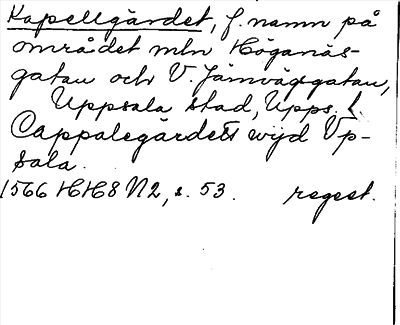 Kapellgärdet, f. namn på
området mln Höganäs-
gatan och V. Järnvägsgatan,
Uppsala stad, Upps. l.
Cappalegärdett wijd Vp-
sala.
1566 HH8 N2, s. 53. regest.